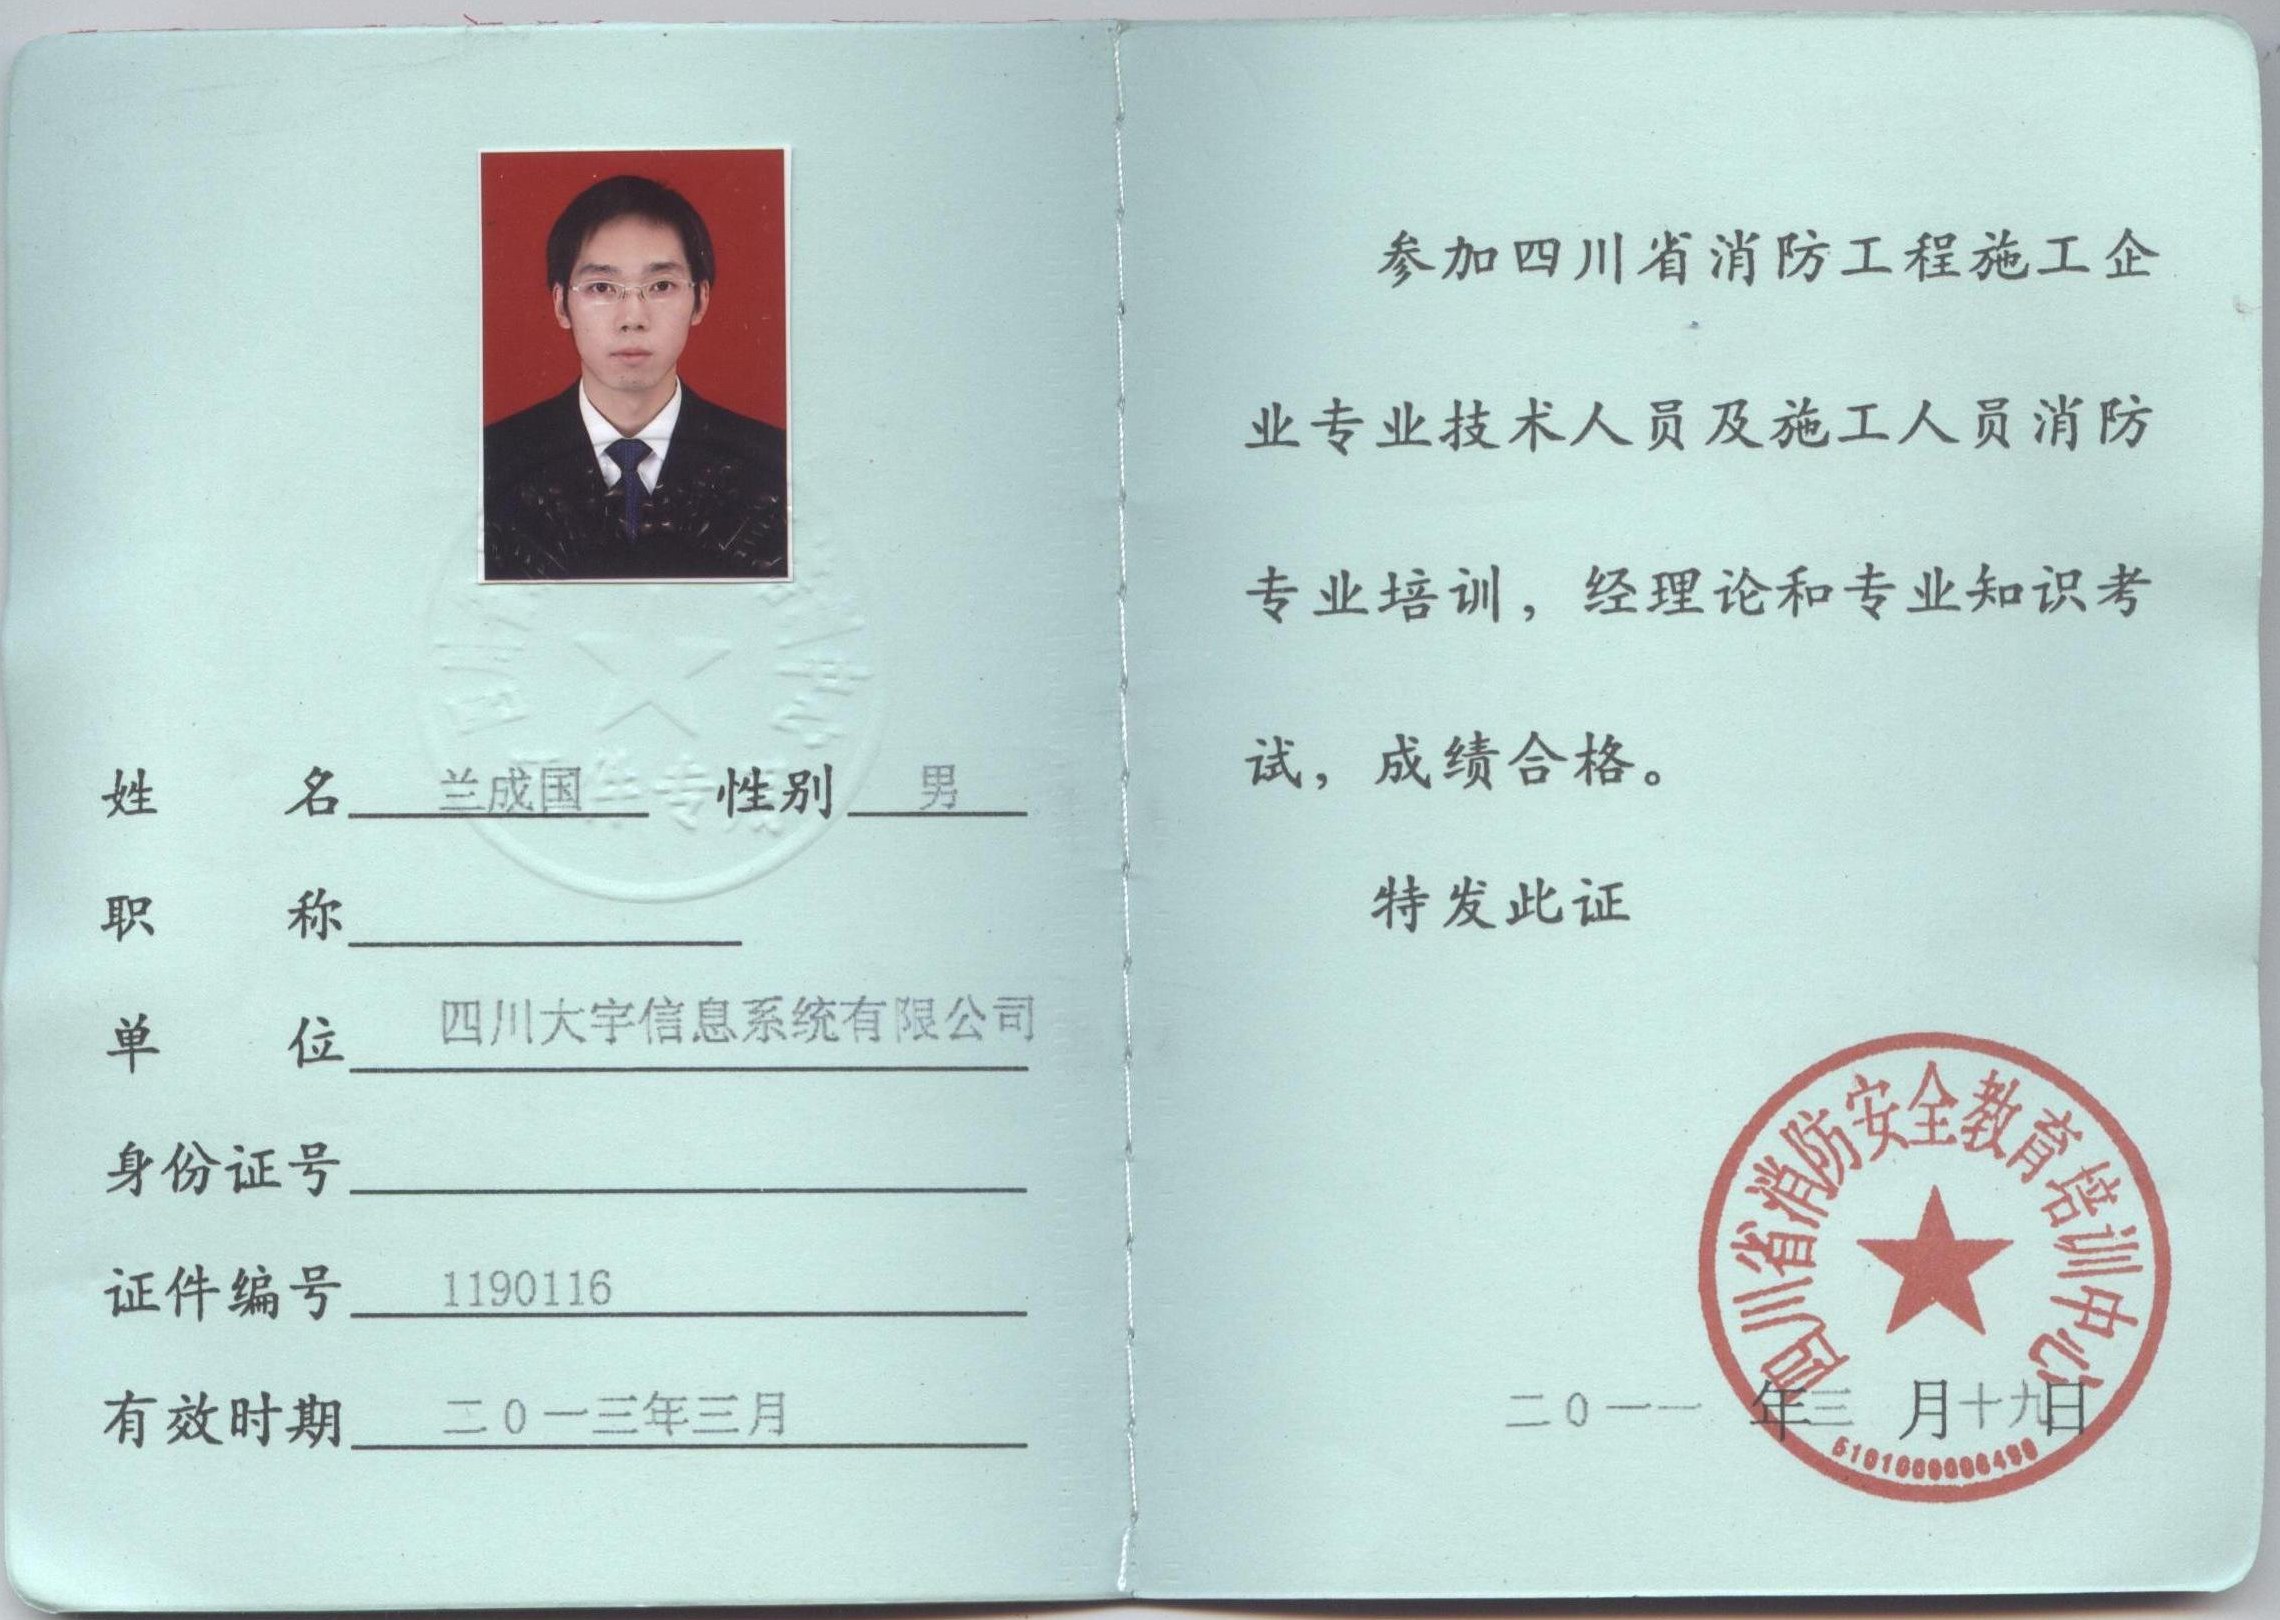 姓名 兰成国 性别 男
职称
单位 四川大宇信息系统有限公司
身份证号
证件编号 1190116
有效时期 二0一三年三月
件专用
参加四川省消防工程施工企
业专业技术人员及施工人员消防
专业培训，经理论和专业知识考
试，成绩合格。
特发此证
四川省消防安全教育培训中心
二0一一年三月十九日